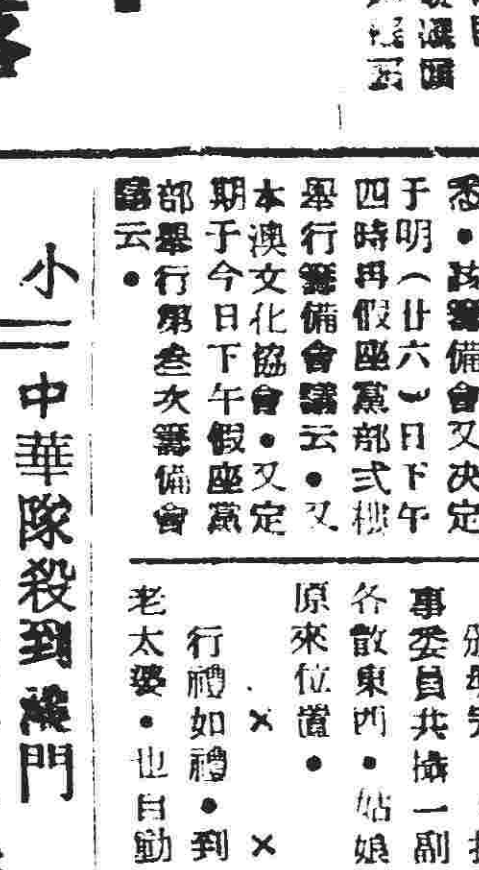 悉・該籌備會又决定
于明（廿六）日下午
四時再假座黨部弍樓
舉行籌備會議云・又
本澳文化協會・又定
期于今日下午假座黨
部舉行第叁次籌備會
議云・
事委員共攝一副
各散東西・姑娘
原來位置・
× ×
行禮如禮・到
老太婆・也自動
小
中華隊殺到澳門